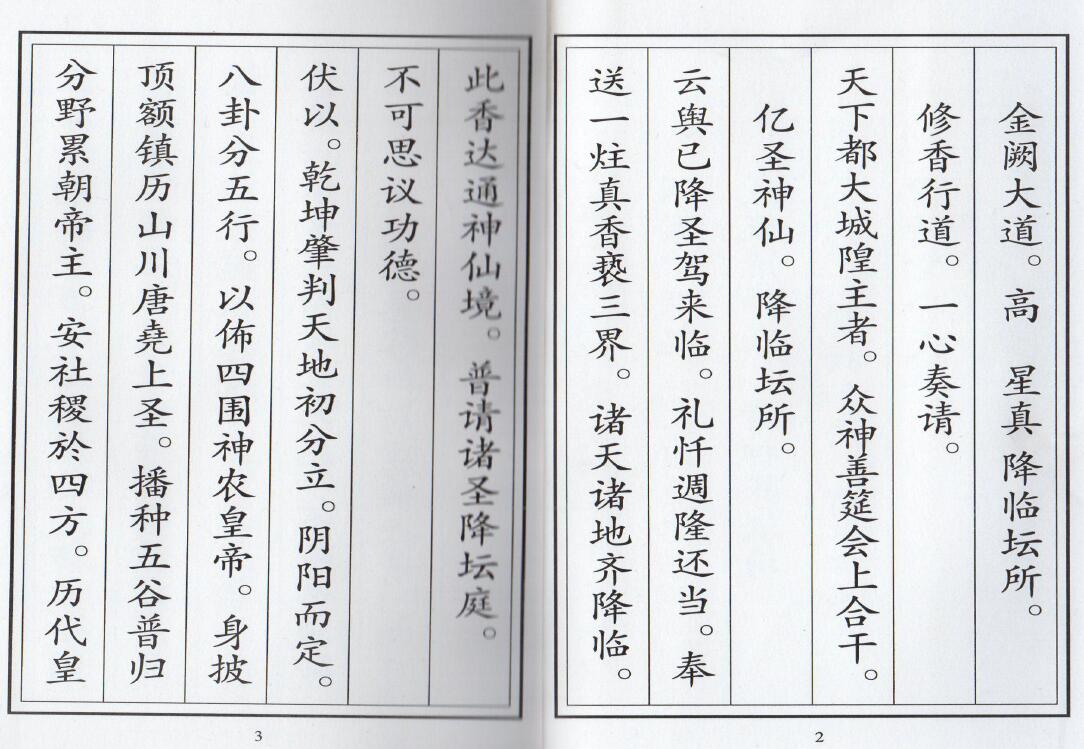 金阙大道。高　星真降临坛所。
修香行道。一心奏请。
天下都大城隍主者。众神善筵会上合干。
亿圣神仙。降临坛所。
云舆已降圣驾来临。礼忏调隆还当。奉
送一炷真香亵三界。诸天诸地齐降临。
2
此香达通神仙境。普请诸圣降坛庭。
不可思议功德。
伏以。乾坤肇判天地初分立。阴阳而定。
八卦分五行。以佈四围神农皇帝。身披
顶额镇历山川唐堯上圣。播种五谷普归
分野累朝帝主。安社稷於四方。历代皇
3